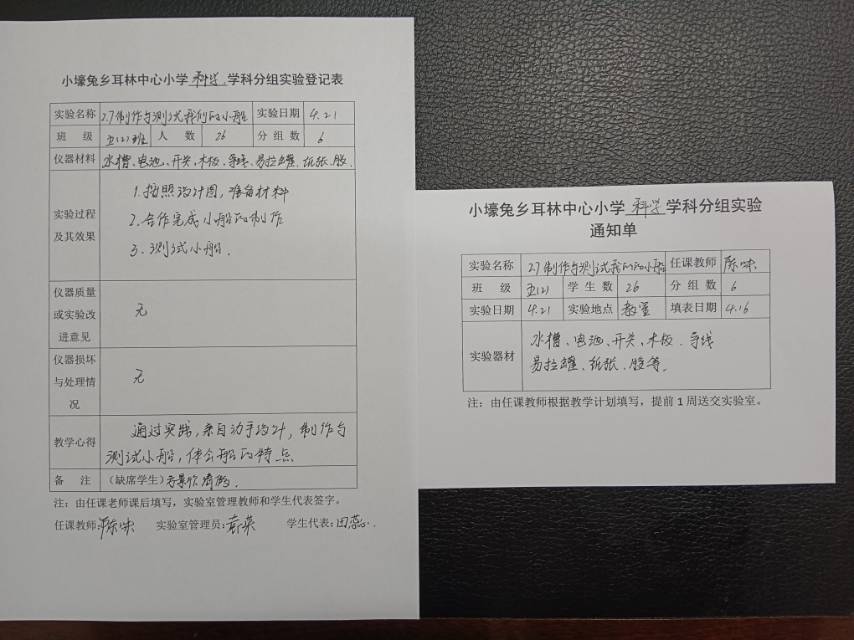 小壕兔乡耳林中心小学 科学 学科分组实验登记表
实验名称 2.7制作与测试我们的小船 实验日期 4.21
班 级 五(2)班 人 数 26 分 组 数 6
仪器材料 水槽、电池、开关、木板、导线、易拉罐、纸张、胶.
实验过程及其效果
1.按照设计图,准备材料
2.合作完成小船的制作
3.测试小船.
仪器质量或实验改进意见 无
仪器损坏与处理情况 无
教学心得 通过实践,亲自动手设计,制作与
测试小船,体会船的特点
备 注 (缺席学生)
注:由任课老师课后填写,实验室管理教师和学生代表签字。
任课教师: 实验室管理员: 学生代表:田蕊.
小壕兔乡耳林中心小学 科学 学科分组实验
通知单
实验名称 2.7制作与测试我们的小船 任课教师
班 级 五(2) 学 生 数 26 分 组 数 6
实验日期 4.21 实验地点 教室 填表日期 4.16
实验器材 水槽、电池、开关、木板、导线
易拉罐、纸张、胶等.
注:由任课教师根据教学计划填写,提前1周送交实验室。